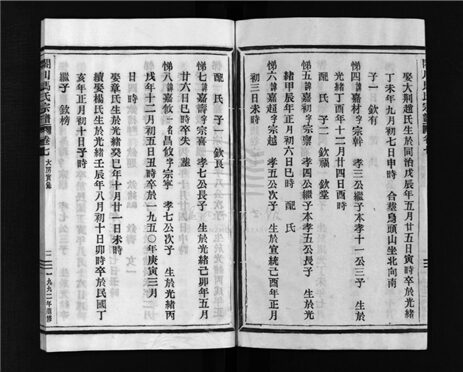 娶大荆趙氏生於同治戊辰年五月廿五日寅時卒於光緒
丁未年九月初七日申時 合葬烏頭山坐北向南
子一 欽有
悌四 諱嘉材 字宗幹 孝三公繼子本孝十一公三子 生於
光緒丁酉年十二月廿四日酉時
配 氏 子二 欽福 欽堂
悌五 諱嘉壽 字宗臺 孝四公繼子本孝五公長子 生於光
緒甲辰年正月初六日巳時 配 氏
悌六 諱嘉超 字宗越 孝五公次子 生於宣統己酉年正月
初三日未時
配 氏 子一 欽長
悌七 諱嘉壽 字宗喜 孝七公長子 生於光緒己卯年五月
廿六日巳時卒失 葬
悌八 諱嘉 一名昌 字宗寧 孝七公次子 生於光緒丙
戌年十二月初五日丑時卒於一九五〇年庚寅三月三
日時
娶章氏生於光緒癸巳年十月廿一日未時
續娶楊氏生於光緒壬辰年八月初十日卯時卒於民國丁
亥年正月初十日子時
繼子 欽榜
馬氏宗譜 卷七 大房實錄
一九九二年重修